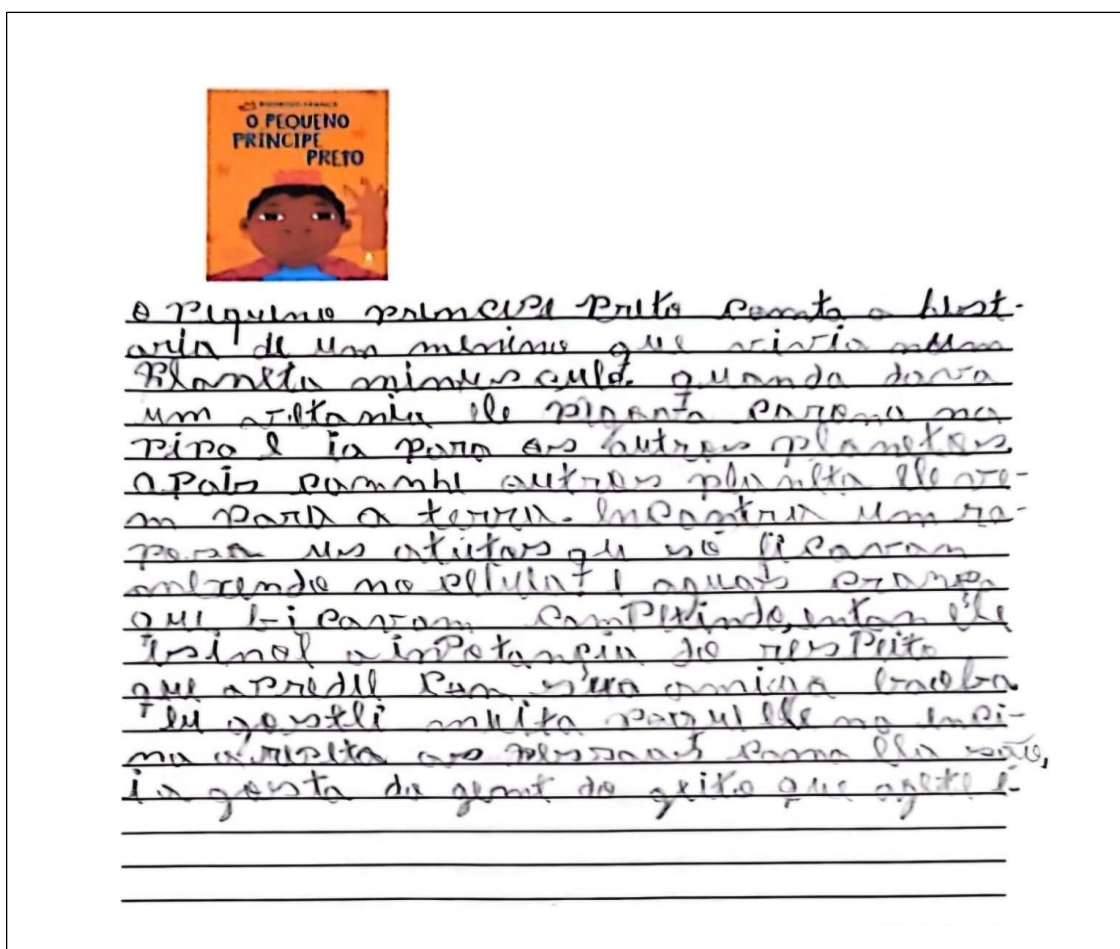 RODRIGO FRANÇA
O PEQUENO
PRÍNCIPE
PRETO
O Piquino principe Prito comta a hist-
oria de um menino que vivia num
Planeta minusculo. quando dava
um viltania ele pigava carona na
pipa e ia para os outros planetas
a pois comnhe outros planeta ele ve-
m para a terra. encontrou um ra-
posa us que só ficavam
mexendo no celula e aguais crança
que ficavam competindo, entan ele
isinol a inpotancia do respeito
que apredeu com sua amiga baoba
eu gostei muita porque ele no insi-
na a respeita as pessoas como ela são,
i a gosta da gent do geito que agete é